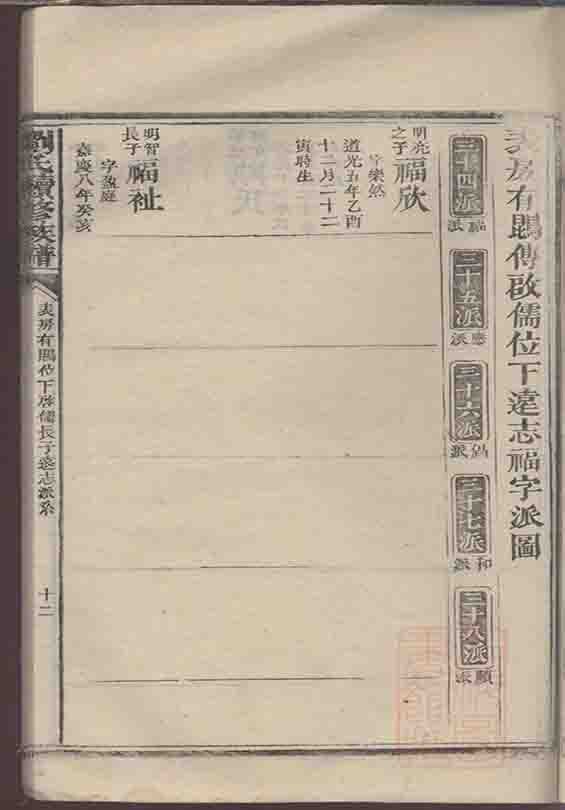 房有鵾傳啟儒位下遠志福字派圖
三十四派
福派
三十五派
應派
三十六派
派
三十七派
和派
三十八派
顯派
明亮之子
福欣
字樂然
道光五年乙酉
十二月二十二
寅時生
明智長子
福祉
字盈庭
嘉慶八年癸亥
劉氏續修族譜
房有鵾位下啟儒長子遠志派系
十二